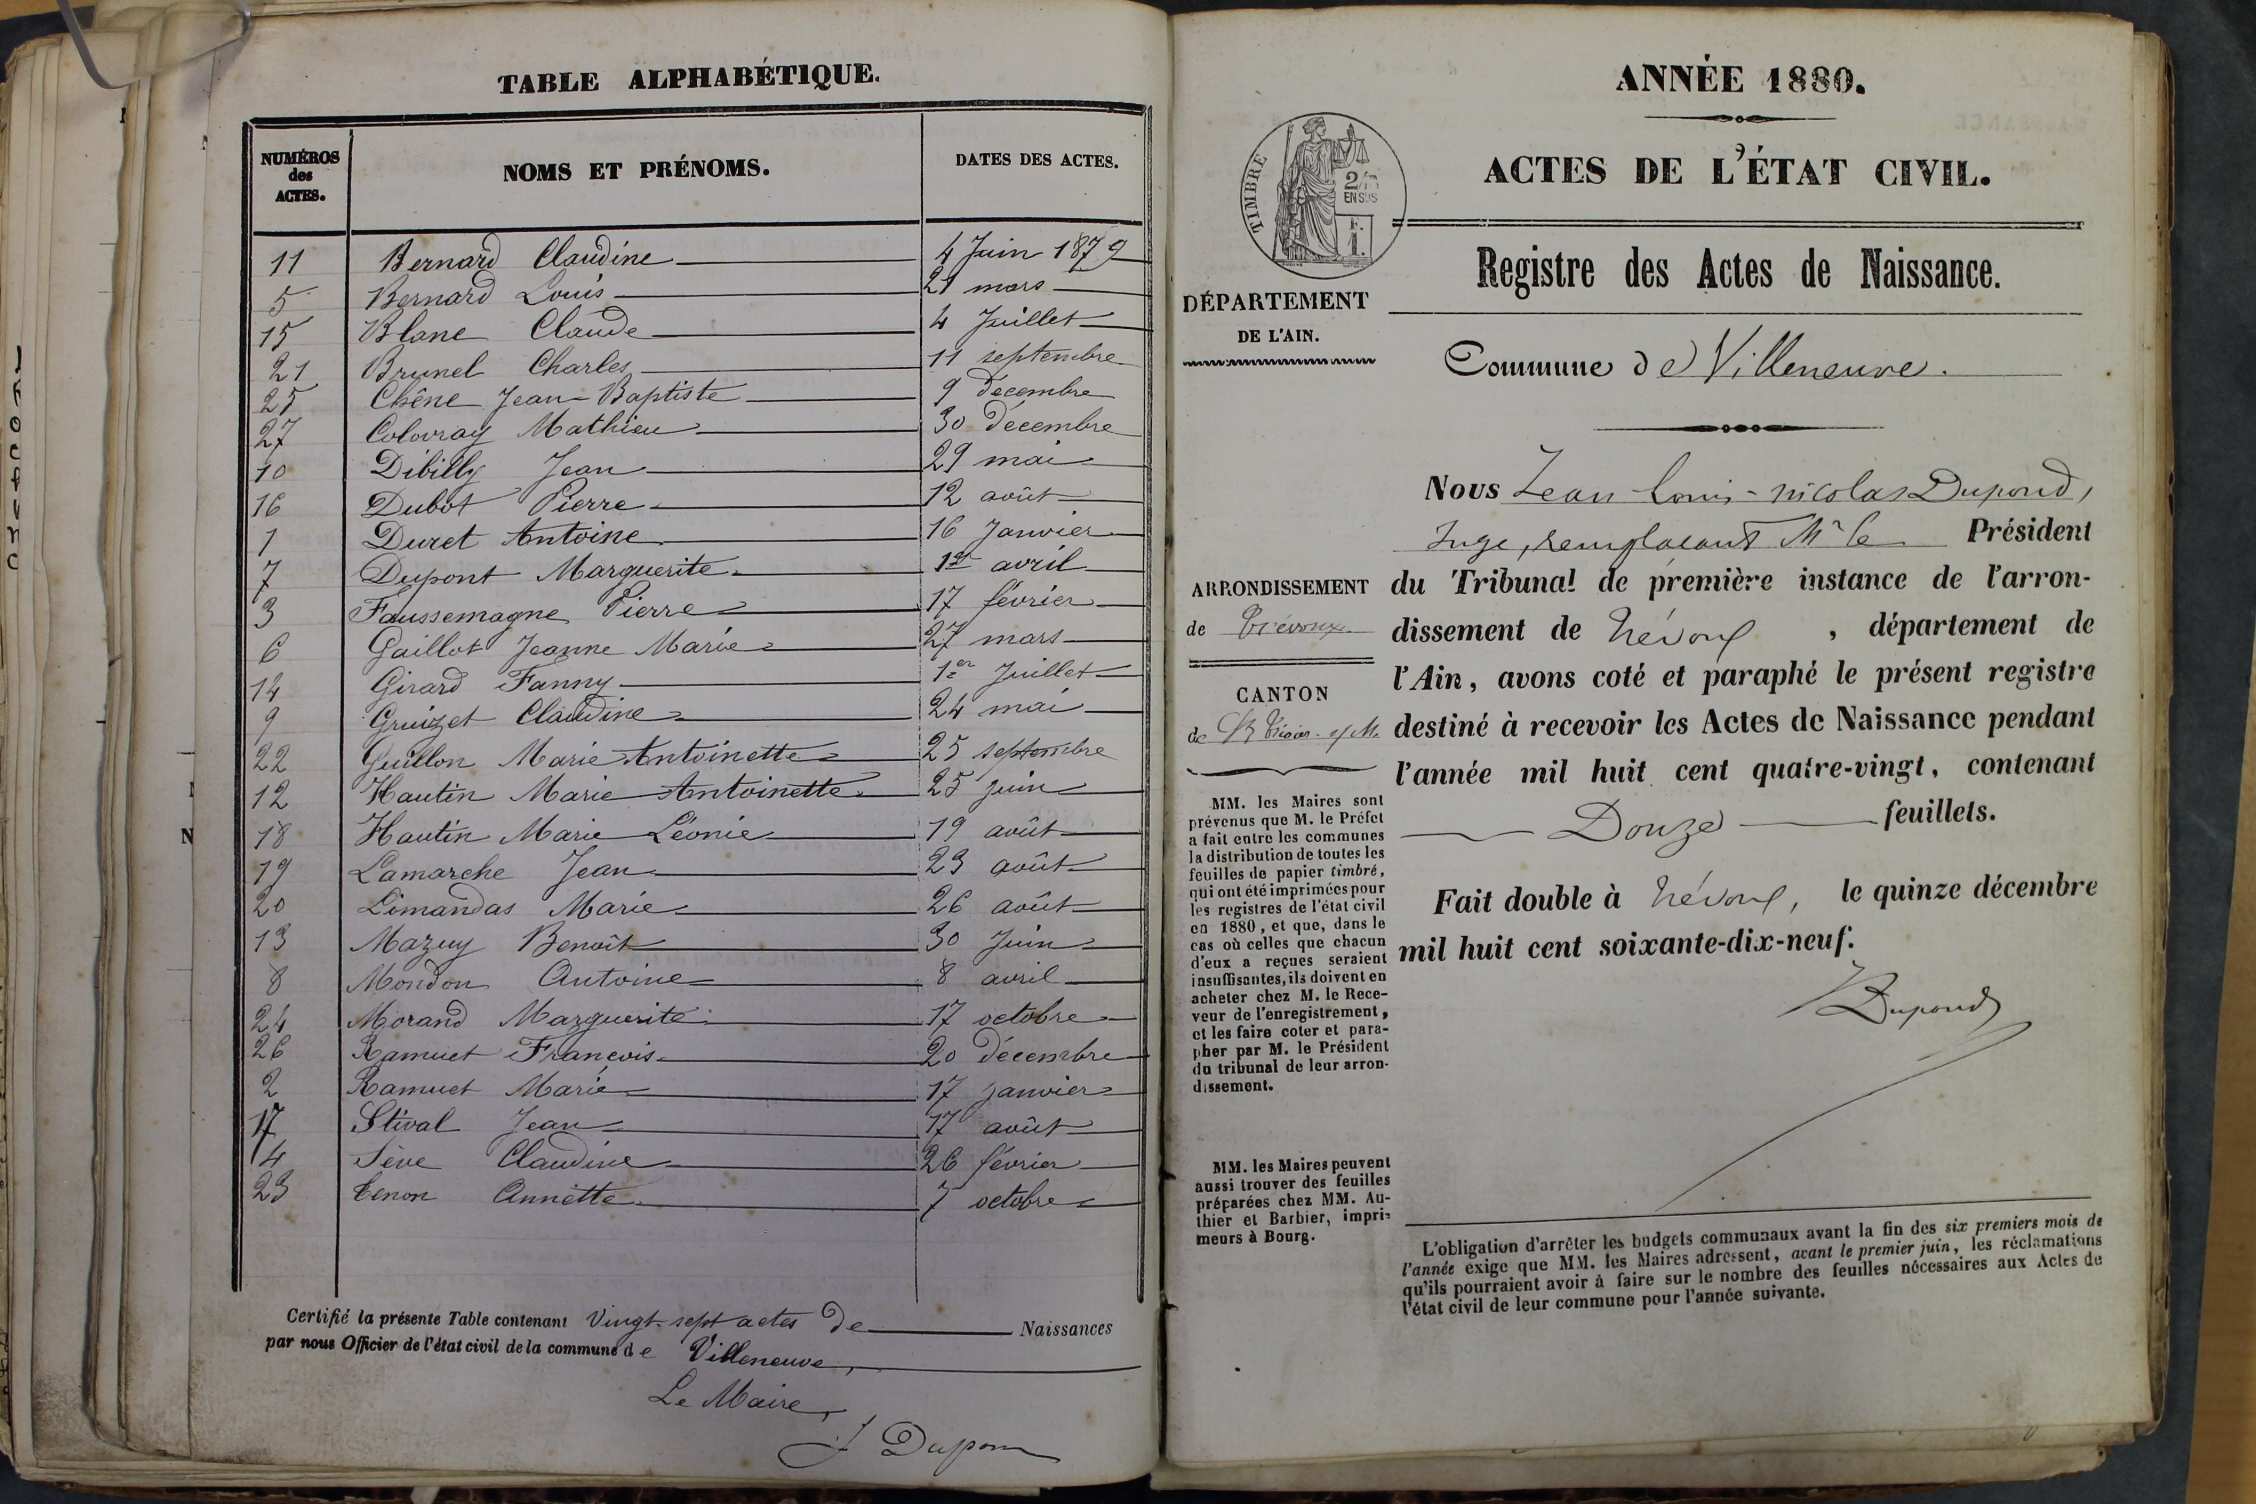 TABLE ALPHABÉTIQUE.
NUMÉROS des ACTES.
NOMS ET PRÉNOMS.
DATES DES ACTES.
11 Bernard Claudine 4 Juin 1879
5 Bernard Louis 21 mars
15 Blanc Claude 4 Juillet
21 Brunel Charles 11 septembre
25 Chêne Jean-Baptiste 9 décembre
27 Colovray Mathieu 30 décembre
10 Dibilly Jean 29 mai
16 Dubot Pierre 12 août
1 Duret Antoine 16 Janvier
7 Dupont Marguerite 1er avril
3 Faussemagne Pierre 17 février
6 Gaillot Jeanne Marie 27 mars
14 Girard Fanny 1er Juillet
9 Gruizet Claudine 24 mai
22 Guillon Marie Antoinette 25 septembre
12 Hautin Marie Antoinette 25 juin
18 Hautin Marie Léonie 19 août
19 Lamarche Jean 23 août
20 Limandas Marie 26 août
13 Mazuy Benoît 30 Juin
8 Mondon Antoine 8 avril
24 Morand Marguerite 17 octobre
26 Ramuet François 20 décembre
2 Ramuet Marie 17 janvier
17 Stival Jean 17 août
4 Sève Claudine 26 février
23 Tenon Annette 7 octobre
Certifié la présente Table contenant Vingt-sept actes de Naissances
par nous Officier de l'état civil de la commune de Villeneuve,
Le Maire,
J Dupon
ANNÉE 1880.
ACTES DE L'ÉTAT CIVIL.
TIMBRE
2/10
EN SUS
F.
1.
Registre des Actes de Naissance.
DÉPARTEMENT
DE L'AIN.
Commune de Villeneuve.
Nous Jean-Louis-Nicolas Dupond,
Juge, remplacant Mr le Président
du Tribunal de première instance de l'arron-
dissement de Trévoux, département de
l'Ain, avons coté et paraphé le présent registre
destiné à recevoir les Actes de Naissance pendant
l'année mil huit cent quatre-vingt, contenant
Douze feuillets.
Fait double à Trévoux, le quinze décembre
mil huit cent soixante-dix-neuf.
Dupond
ARRONDISSEMENT
de Trévoux
CANTON
de St Trivier s/ M.
MM. les Maires sont
prévenus que M. le Préfet
a fait entre les communes
la distribution de toutes les
feuilles de papier timbré,
qui ont été imprimées pour
les registres de l'état civil
en 1880, et que, dans le
cas où celles que chacun
d'eux a reçues seraient
insuffisantes, ils doivent en
acheter chez M. le Rece-
veur de l'enregistrement,
et les faire coter et para-
pher par M. le Président
du tribunal de leur arron-
dissement.
MM. les Maires peuvent
aussi trouver des feuilles
préparées chez MM. Au-
thier et Barbier, impri-
meurs à Bourg.
L'obligation d'arrêter les budgets communaux avant la fin des six premiers mois de
l'année exige que MM. les Maires adressent, avant le premier juin, les réclamations
qu'ils pourraient avoir à faire sur le nombre des feuilles nécessaires aux Actes de
l'état civil de leur commune pour l'année suivante.